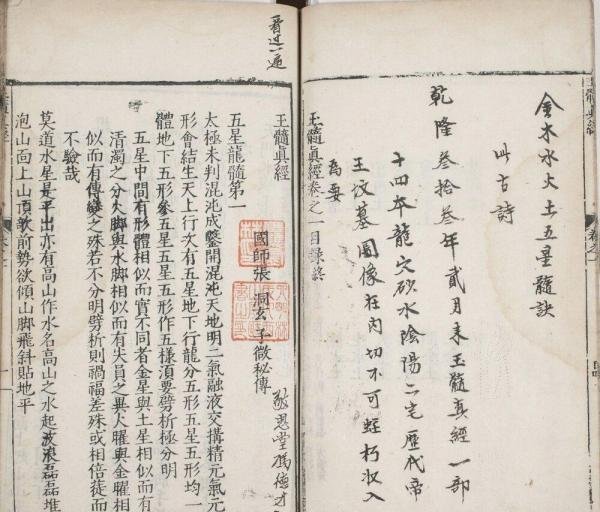 金木水火土五星髓訣
此古詩
乾隆叁拾叁年貳月未玉髓真經一部
十四本龍穴砂水陰陽二宅歷代帝
王汶墓圖像在內切不可蛭朽收入
為要
玉髓真經卷之一目錄終
看过一遍
玉髓眞經
國師張 洞玄 子微秘傳
敬思堂馮德才
五星龍髓第一
太極未判混沌成鑿開混沌天地明二氣融液交搆精元氣元
形會結生天上行次有五星地下行龍分五形五星五形均一
體地下五形參五星五星五形作五樣須要劈析極分明
五星中間有形體相似而實不同者金星與土星相似而有
清濁之分火脚與水脚相似而有失員之異火曜與金曜相
似而有傳變之殊若不分明劈析則禍福差殊或相倍蓰而
不驗哉
莫道水星是平出亦有高山作水名高山之水起波浪磊磊堆
泡山面上山頂欹前勢欲傾山脚飛斜貼地平